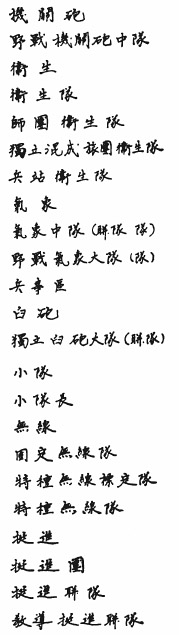 機關砲
野戰機關砲中隊
衛生
衛生隊
師團衛生隊
獨立混成旅團衛生隊
兵站衛生隊
氣象
氣象中隊(聯隊 隊)
野戰氣象大隊(隊)
兵事區
臼砲
獨立臼砲大隊(聯隊)
小隊
小隊長
無線
固定無線隊
特種無線標定隊
特種無線隊
挺進
挺進團
挺進聯隊
教導挺進聯隊